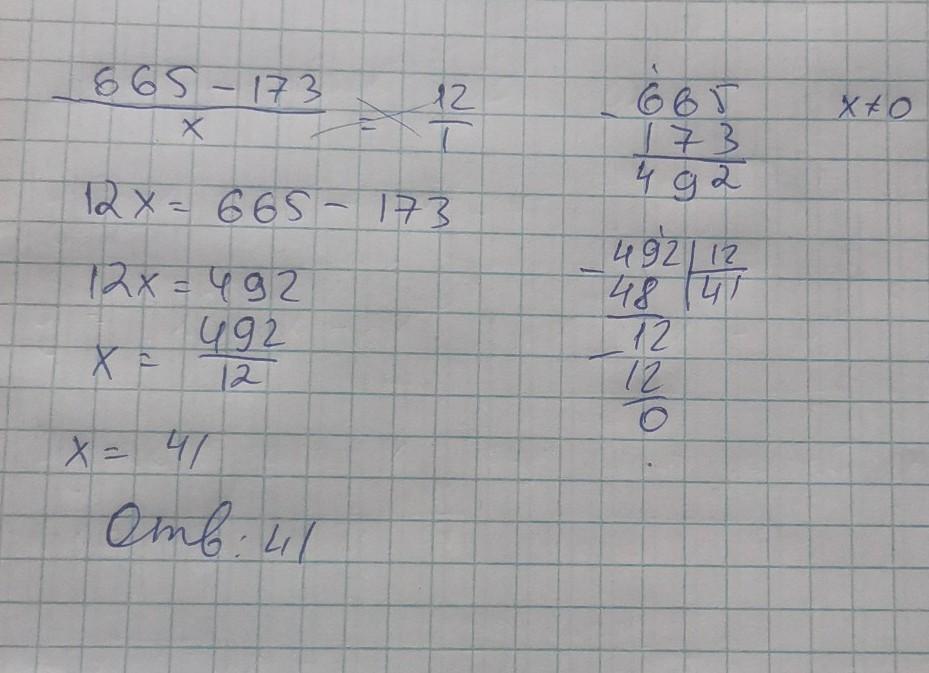 665 - 173 / x = 12 / 1
12x = 665 - 173
12x = 492
x = 492 / 12
x = 41
Отв: 41
- 665
173
492
x ≠ 0
- 492 | 12
48 | 41
- 12
12
0